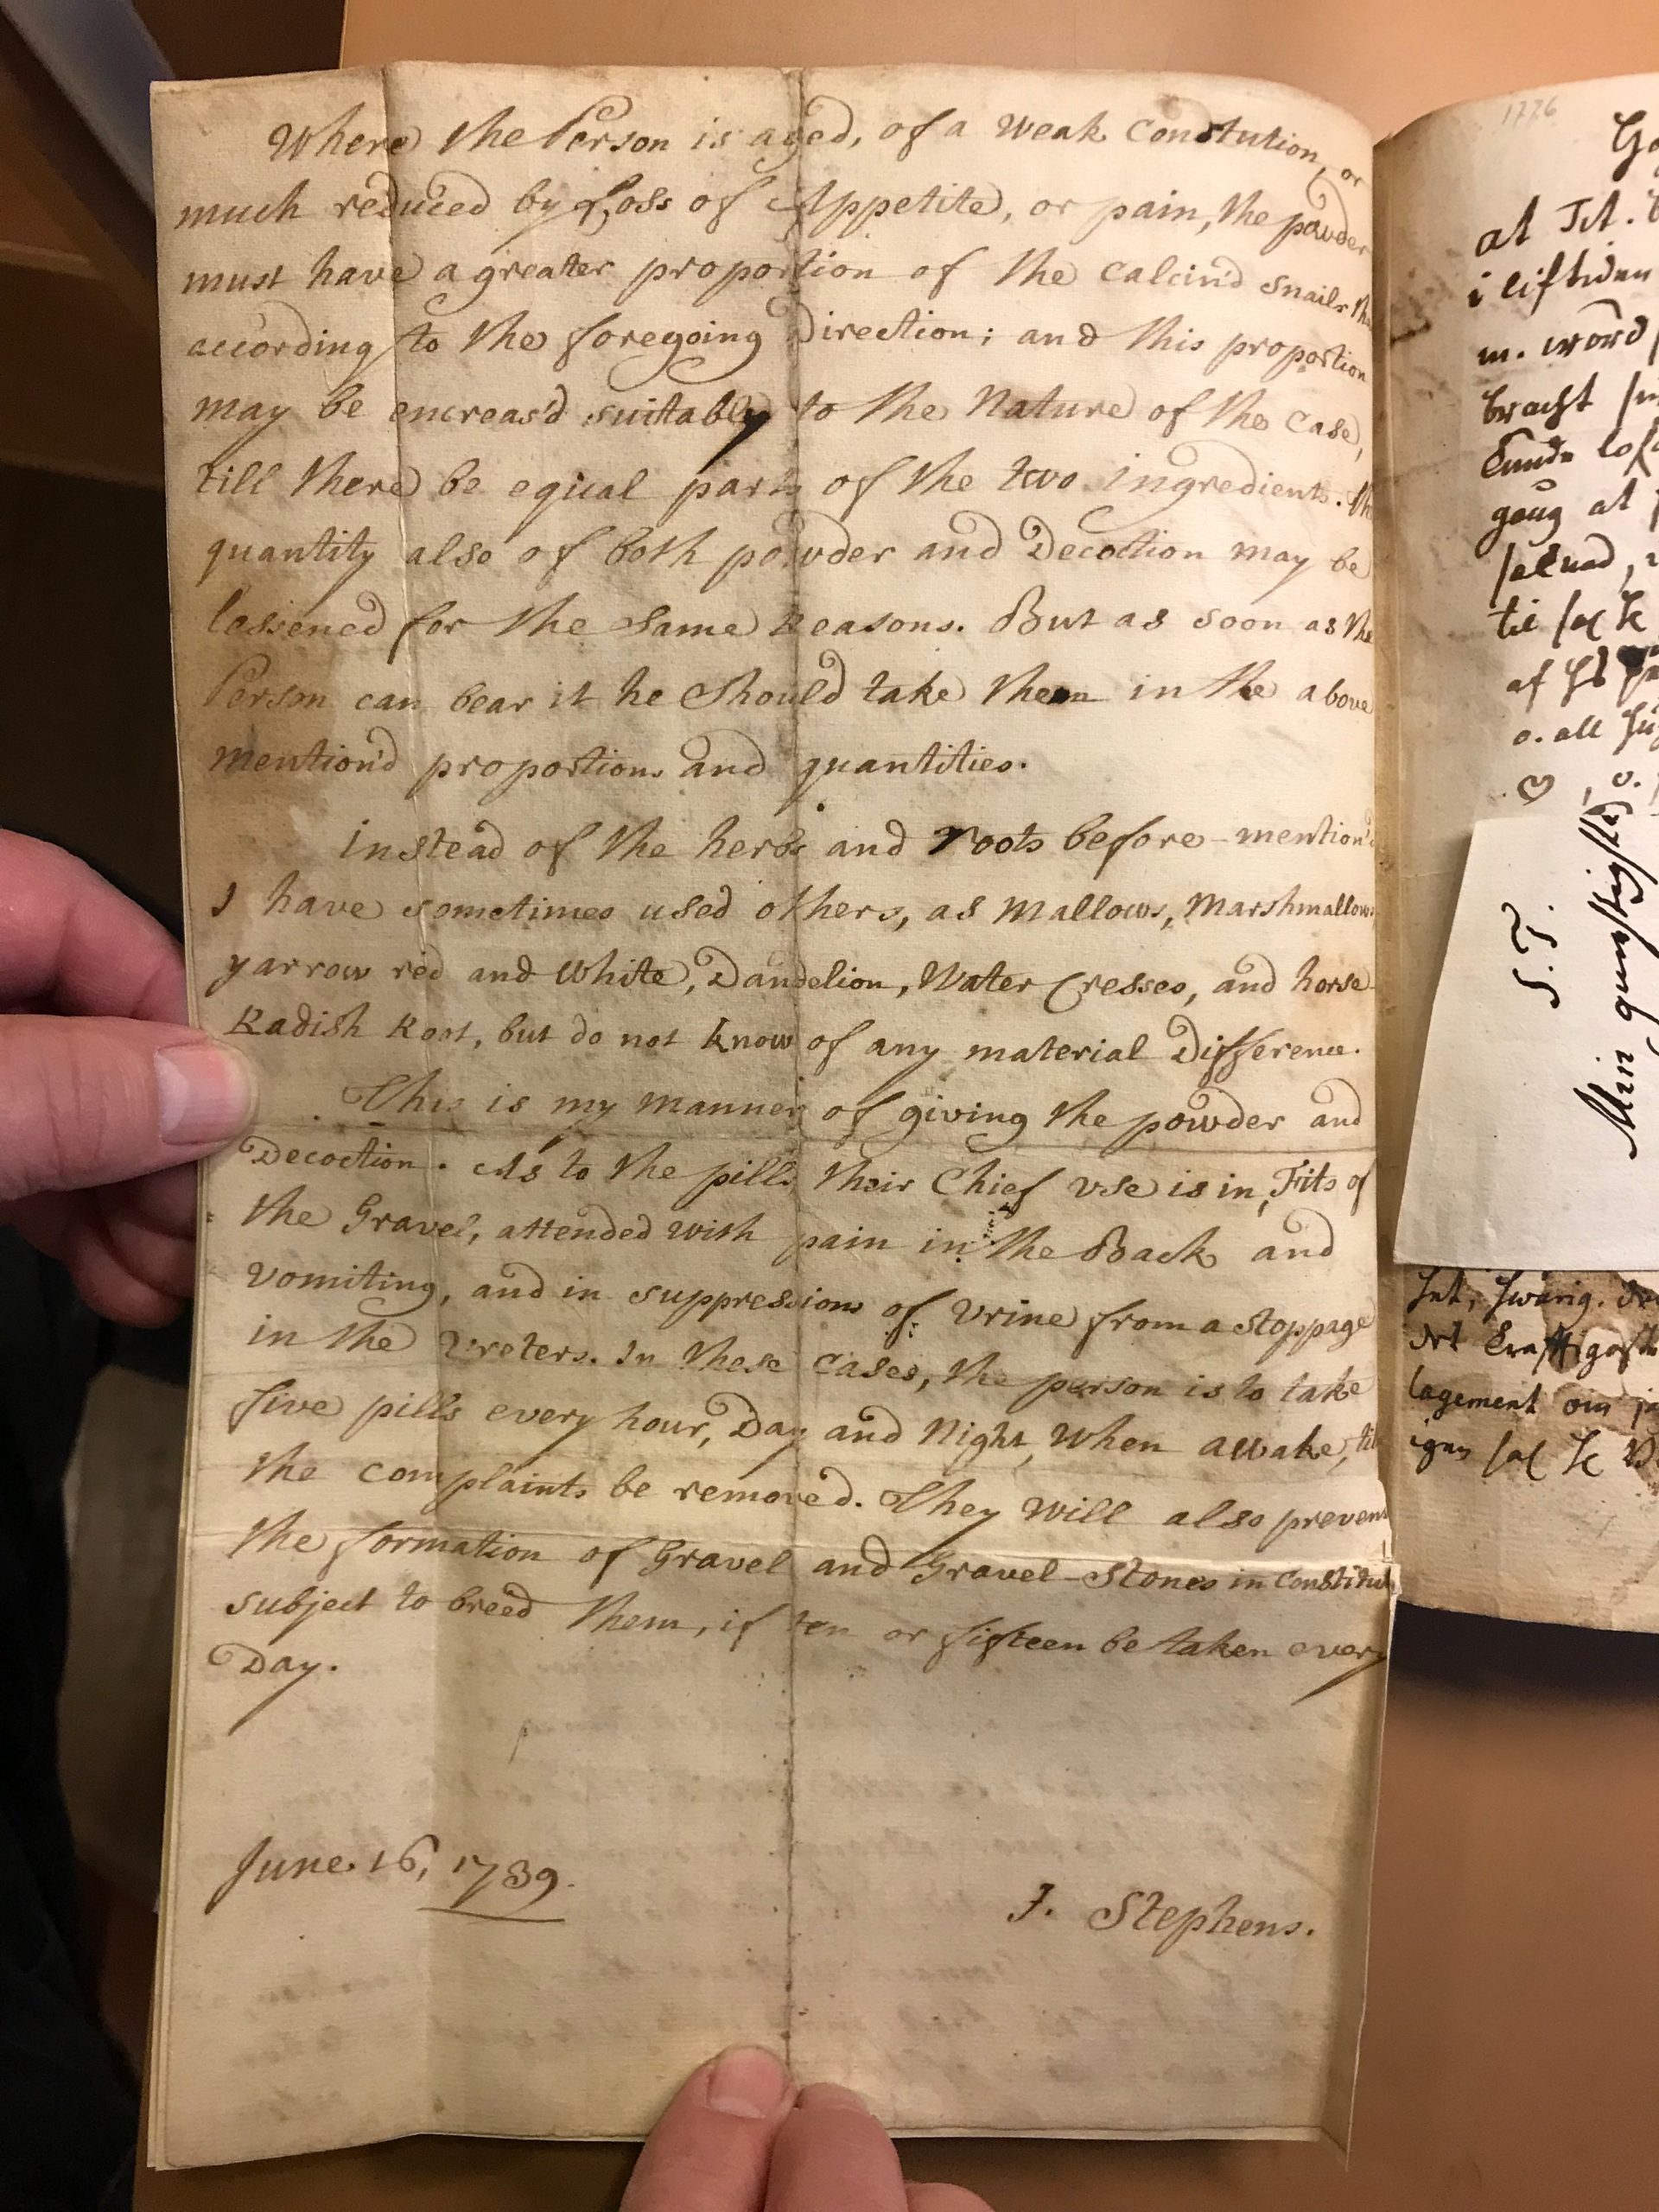 Where the Person is aged, of a Weak Constution, or
much reduced by Loss of Appetite, or pain, the powder
must have a greater proportion of the Calcin'd Snails
according to the foregoing Direction; and this proportion
may be encreas'd suitably to the Nature of the Case,
till there be equal parts of the two ingredients. The
quantity also of both powder and Decoction may be
lessened for the Same Reasons. But as soon as the
Person can bear it he Should take them in the above
mention'd proportions and quantities.
instead of the herbs and roots before-mention'd
I have sometimes used others, as Mallows, Marshmallows
yarrow red and White, Dandelion, Water Cresses, and horse-
Radish Root, but do not know of any material Difference.
This is my manner of giving the powder and
Decoction. As to the pills their Chief Use is in, Fits of
the Gravel, attended with pain in the Back and
Vomiting, and in suppressions of Urine from a Stoppage
in the Ureters. In these Cases, the person is to take
five pills every hour, Day and Night, When awake, till
the complaints be removed. They Will also prevent
the formation of Gravel and Gravel-Stones in Constitut
subject to breed Them, if ten or fifteen be taken every
Day.
June. 16, 1739.
J. Stephens.
1776
at Tit.
i liftiden
m. word
bracht
gaug at
til
o. all
S. T.
Min gunstigste
lagement om